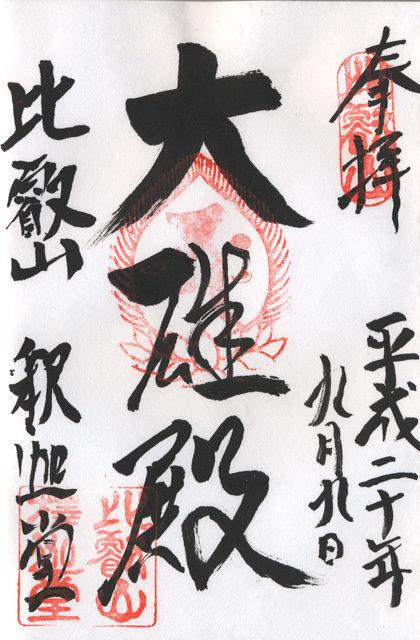 奉拝
平成二十年
九月九日
大雄殿
比叡山 釈迦堂
比叡山